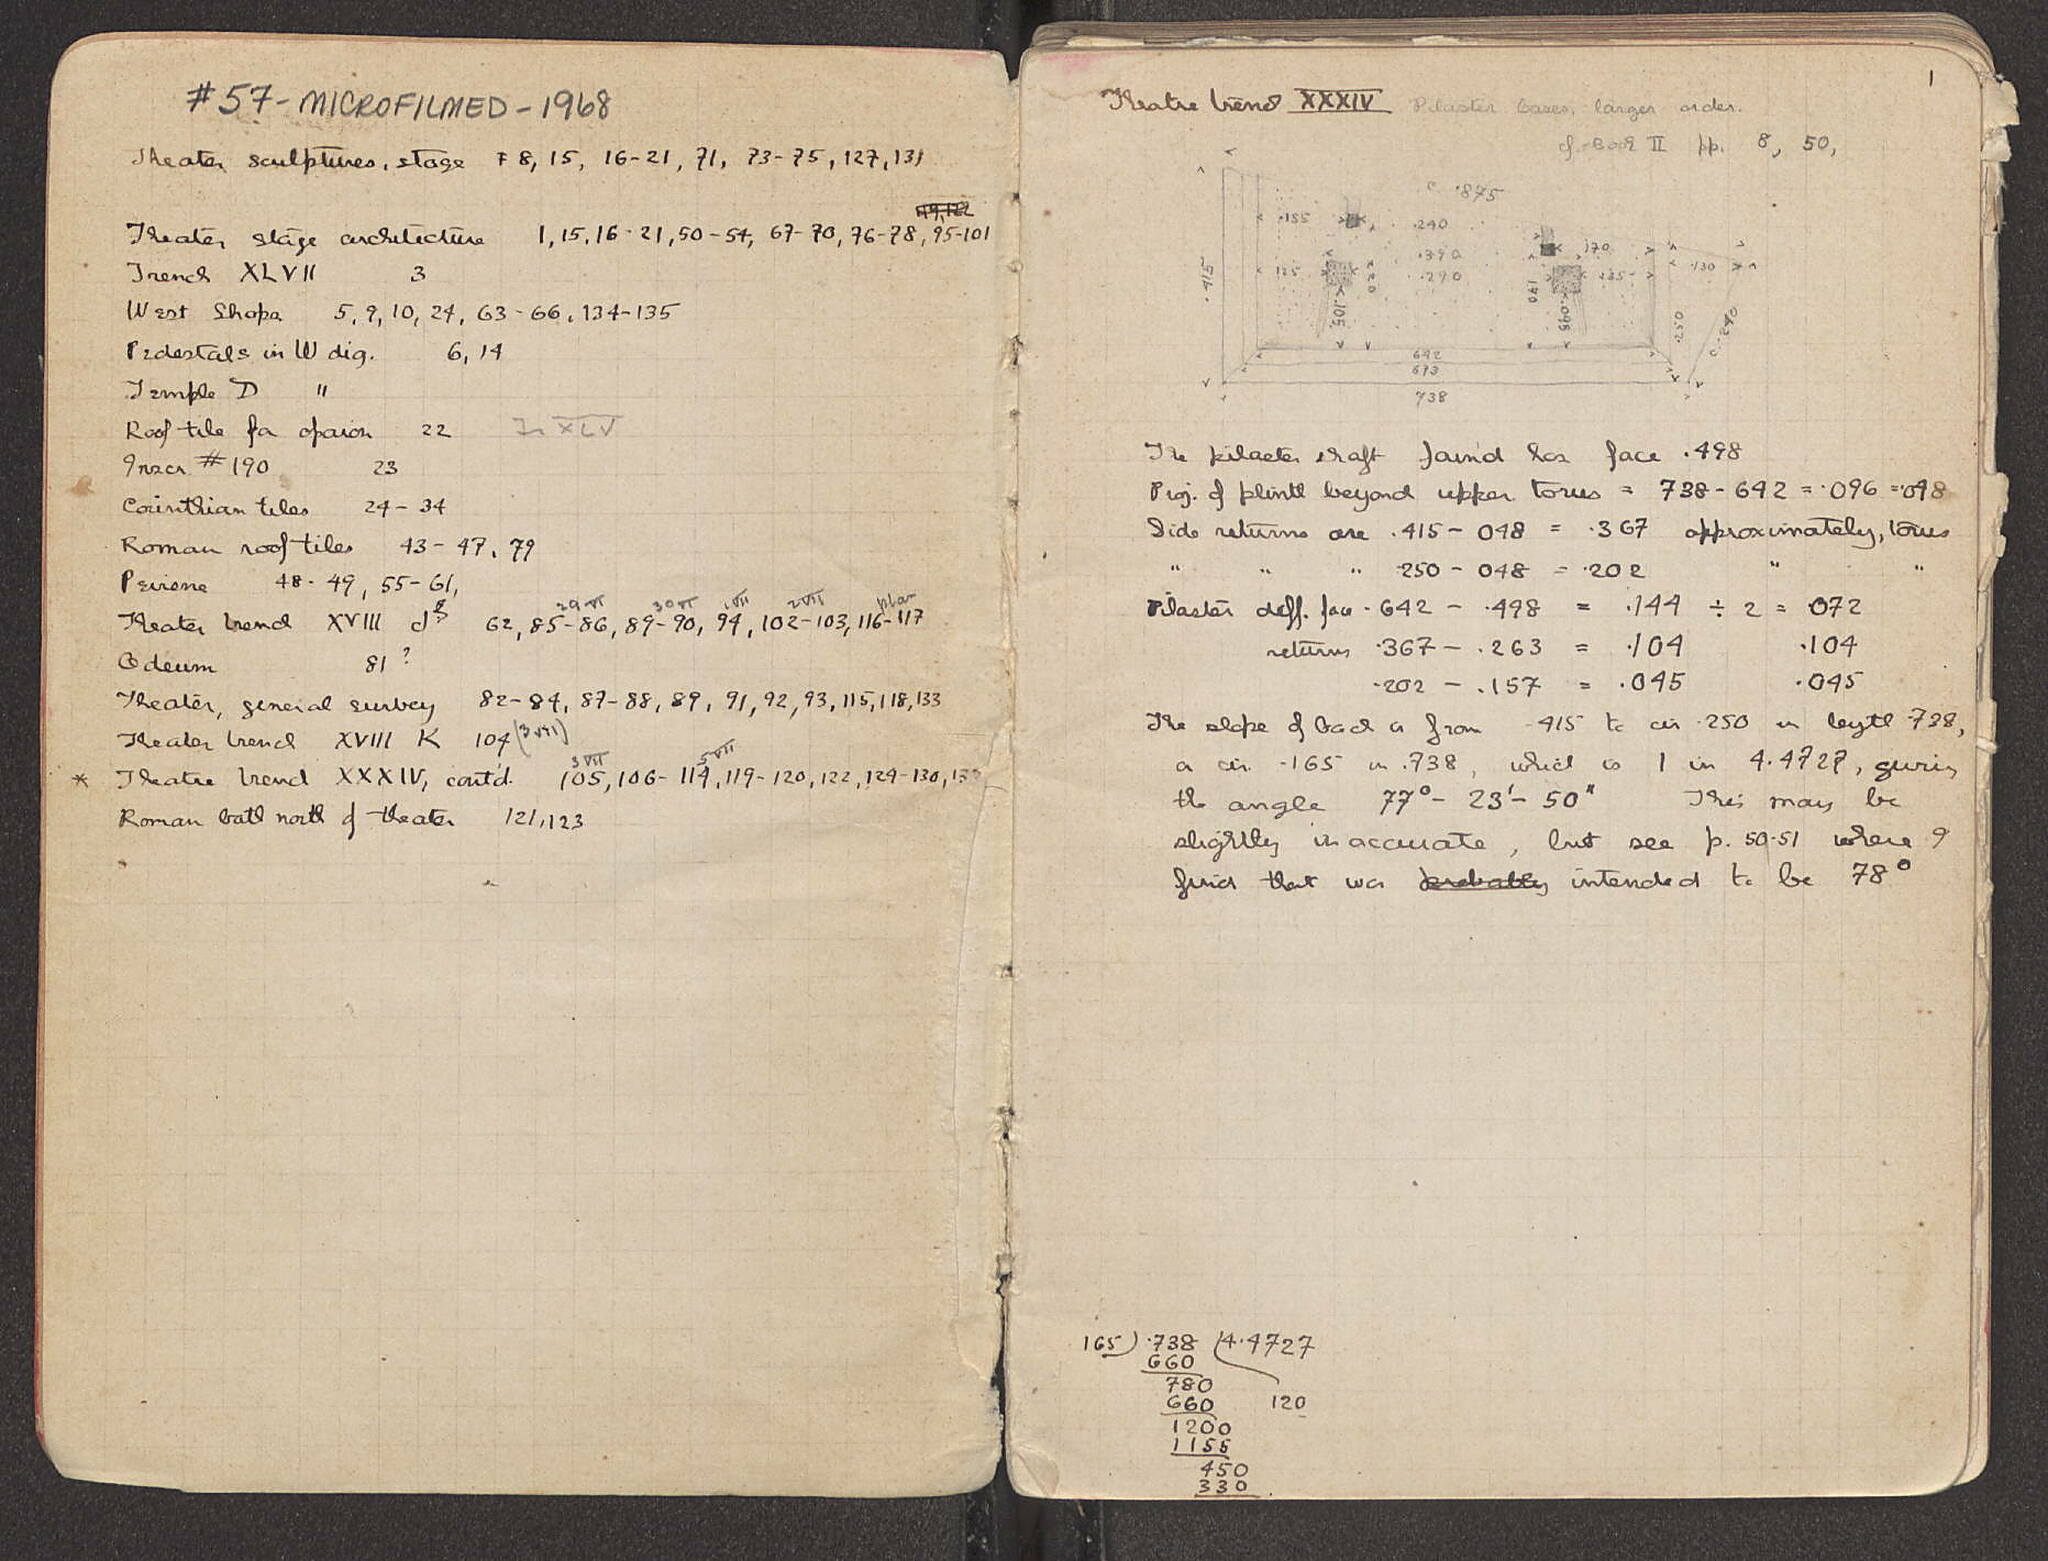 #57 - MICROFILMED - 1968
Theater sculptures, stage 8, 15, 16-21, 71, 73-75, 127, 131
Theater stage architecture 1, 15, 16-21, 50-54, 67-70, 76-78, 95-101
Trench XLVII 3
West Shops 5, 9, 10, 24, 63-66, 134-135
Pedestals in W dig. 6, 14
Temple D "
Roof tile fr opaion 22 Tr XLV
Inscr #190 23
Corinthian tiles 24-34
Roman roof tiles 43-47, 79
Peirene 48-49, 55-61,
29 VI 30 VI 1 VII 2 VII plan
Theater trench XVIII 62, 85-86, 89-90, 94, 102-103, 116-117
Odeum 81?
Theater, general survey 82-84, 87-88, 89, 91, 92, 93, 115, 118, 133
Theater trench XVIII K 104 (3 VII)
3 VII 5 VII
* Theatre trench XXXIV, contd. 105, 106-114, 119-120, 122, 124-130,
Roman bath north of theater 121, 123
1
Theatre trench XXXIV Pilaster bases, larger order.
cf. Book II pp. 8, 50,
c .875
.155 .240
.390 .170
.125 .290 .135 .130
.415
.105 .095
.052
642
673
738
The pilaster shaft found has face .498
Proj. of plinth beyond upper torus = 738 - 642 = .096 = .048
Side returns are .415 - 048 = .367 approximately, torus
" " " 250 - 048 = .202 " "
Pilaster diff. face .642 - .498 = .144 ÷ 2 = .072
returns .367 - .263 = .104 .104
.202 - .157 = .045 .045
The slope of back is from .415 to cir .250 in length .738,
a cir. .165 in .738, which is 1 in 4.4727, giving
the angle 77° - 23' - 50" This may be
slightly inaccurate, but see p. 50-51 where I
find that was probably intended to be 78°
165) .738 (4.4727
660
780
660 120
1200
1155
450
330